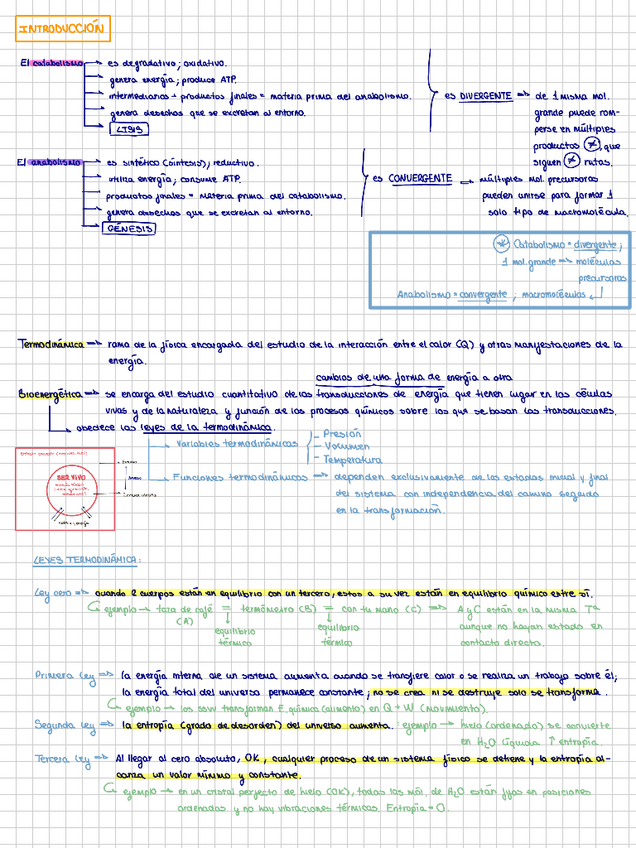 INTRODUCCIÓN
El catabolismo → es degradativo; oxidativo.
→ genera energía; produce ATP.
→ intermediarios + productos finales = materia prima del anabolismo.
→ genera desechos que se excretan al entorno.
→ LISIS
es DIVERGENTE ⇒ de 1 misma mol.
grande puede rom-
perse en múltiples
productos * que
siguen * rutas.
El anabolismo → es sintético (síntesis); reductivo.
→ utiliza energía; consume ATP.
→ productos finales = materia prima del catabolismo.
→ genera desechos que se excretan al entorno.
→ GÉNESIS
es CONVERGENTE → múltiples mol. precursoras
pueden unirse para formar 1
solo tipo de macromolécula.
* Catabolismo = divergente;
1 mol. grande ⇒ moléculas
precursoras
Anabolismo = convergente; macromoléculas ↲
Termodinámica ⇒ rama de la física encargada del estudio de la interacción entre el calor (Q) y otras manifestaciones de la
energía.
cambios de una forma de energía a otra
Bioenergética ⇒ se encarga del estudio cuantitativo de las transducciones de energía que tienen lugar en las células
vivas y de la naturaleza y función de los procesos químicos sobre los que se basan las transducciones.
→ obedece las leyes de la termodinámica.
→ Variables termodinámicas
- Presión
- Volumen
- Temperatura
→ Funciones termodinámicas ⇒ dependen exclusivamente de los estados inicial y final
del sistema con independencia del camino seguido
en la transformación.
SER VIVO
LEYES TERMODINÁMICA:
Ley cero ⇒ cuando 2 cuerpos están en equilibrio con un tercero, estos a su vez están en equilibrio químico entre sí.
ejemplo → taza de café = termómetro (B) = con tu mano (C) ⇒ A y C están en la misma Tª
(A) equilibrio térmico equilibrio térmico aunque no hayan estado en
contacto directo.
Primera ley ⇒ la energía interna de un sistema aumenta cuando se transfiere calor o se realiza un trabajo sobre él;
la energía total del universo permanece constante; no se crea ni se destruye solo se transforma.
ejemplo → los sovv transforman E química (alimento) en Q + W (movimiento).
Segunda ley ⇒ la entropía (grado de desorden) del universo aumenta. ejemplo → hielo (ordenado) se convierte
en H₂O líquida ↑ entropía.
Tercera ley ⇒ Al llegar al cero absoluto, 0K, cualquier proceso de un sistema físico se detiene y la entropía al-
canza un valor mínimo y constante.
ejemplo → en un cristal perfecto de hielo (0K), todas las mól. de H₂O están fijas en posiciones
ordenadas y no hay vibraciones térmicas. Entropía = 0.